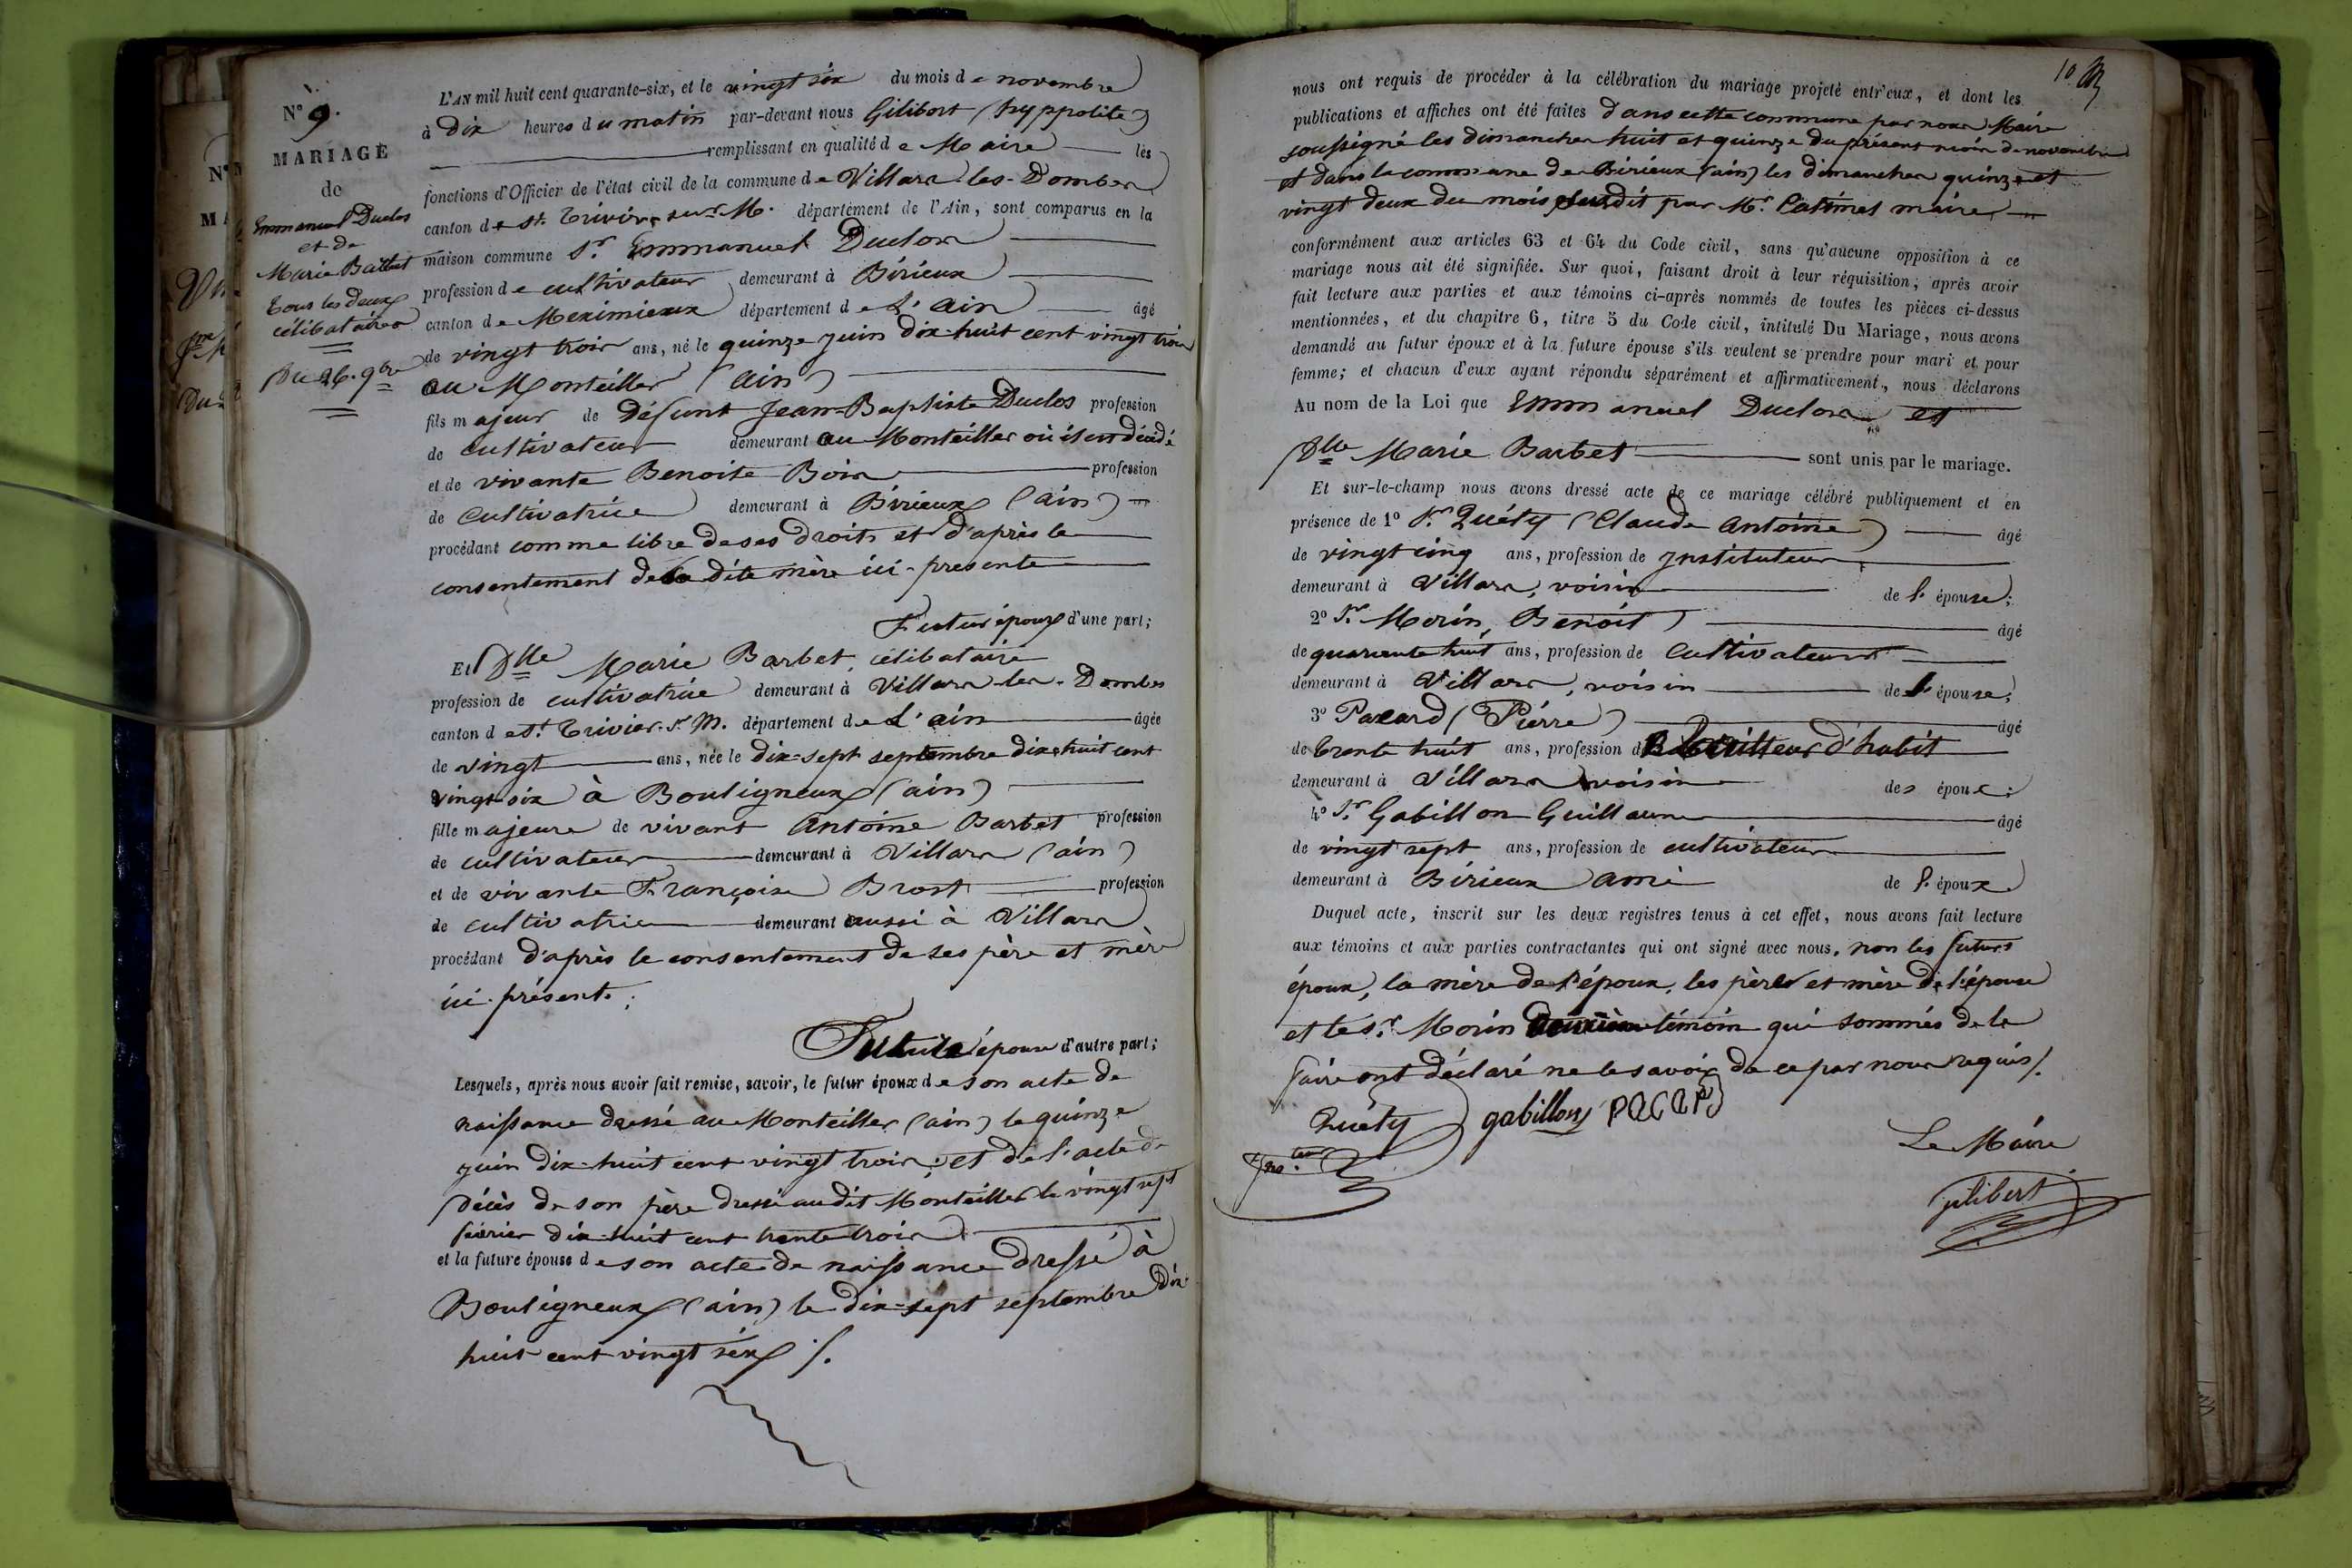 N° 9.
MARIAGE
de
Emmanuel Duclos
et de
Marie Barbet
tous les deux
célibataires
Du 26. 9bre
L'AN mil huit cent quarante-six, et le vingt six du mois de novembre
à dix heures du matin par-devant nous Gilibert (hyppolite)
remplissant en qualité de Maire les
fonctions d'Officier de l'état civil de la commune de Villars-les-Dombes
canton de St. Trivier sur M. département de l'Ain, sont comparus en la
maison commune Sr. Emmanuel Duclos
profession de cultivateur demeurant à Birieux
canton de Meximieux département de L'ain âgé
de vingt trois ans, né le quinze juin dix-huit cent vingt trois
au Montellier (ain)
fils majeur de défunt Jean-Baptiste Duclos profession
de cultivateur demeurant au Monteiller où il est décédé
et de vivante Benoite Bois profession
de cultivatrice demeurant à Birieux (ain)
procédant comme libre de ses droits et d'après le
consentement de sa dite mère ici-presente
Futur époux d'une part;
Et Dlle Marie Barbet, célibataire
profession de cultivatrice demeurant à Villars-les-Dombes
canton de St. Trivier-sr. M. département de L'ain âgée
de vingt ans, née le dix-sept septembre dix-huit cent
vingt-six à Bouligneux (ain)
fille majeure de vivant Antoine Barbet profession
de cultivateur demeurant à Villars (ain)
et de vivante Françoise Brost profession
de cultivatrice demeurant aussi à Villars
procédant d'après le consentement de ses père et mère
ici-présents;
Future épouse d'autre part;
Lesquels, après nous avoir fait remise, savoir, le futur époux de son acte de
naissance dressé au Monteiller (ain) le quinze
juin dix-huit cent vingt trois; et de l'acte de
décès de son père dressé au dit Monteiller le vingt sept
février dix-huit cent trente trois
et la future épouse de son acte de naissance dressé à
Bouligneux (ain) le dix-sept septembre dix-
huit cent vingt six ./.
10
nous ont requis de procéder à la célébration du mariage projeté entr'eux, et dont les
publications et affiches ont été faites dans cette commune par nous Maire
soussigné les dimanches huit et quinze du présent mois de novembre
et dans la commune de Birieux (ain) les dimanches quinze et
vingt deux du mois susdit par Mr. Catimel maire
conformément aux articles 63 et 64 du Code civil, sans qu'aucune opposition à ce
mariage nous ait été signifiée. Sur quoi, faisant droit à leur réquisition, après avoir
fait lecture aux parties et aux témoins ci-après nommés de toutes les pièces ci-dessus
mentionnées, et du chapitre 6, titre 5 du Code civil, intitulé Du Mariage, nous avons
demandé au futur époux et à la future épouse s'ils veulent se prendre pour mari et pour
femme; et chacun d'eux ayant répondu séparément et affirmativement, nous déclarons
Au nom de la Loi que Emmanuel Duclos et
Dlle Marie Barbet sont unis par le mariage.
Et sur-le-champ nous avons dressé acte de ce mariage célébré publiquement et en
présence de 1° Sr. Quéty (Claude Antoine) âgé
de vingt cinq ans, profession de Instituteur
demeurant à Villars, voisin de l'épouse;
2° Sr. Morin, Benoit âgé
de quarante huit ans, profession de cultivateur
demeurant à Villars, voisin de l'épouse;
3° Pacard (Pierre) âgé
de trente huit ans, profession de d'habit
demeurant à Villars voisin des époux;
4° Sr. Gabillon Guillaume âgé
de vingt sept ans, profession de cultivateur
demeurant à Birieux ami de l'époux.
Duquel acte, inscrit sur les deux registres tenus à cet effet, nous avons fait lecture
aux témoins et aux parties contractantes qui ont signé avec nous, non les futurs
époux, la mère de l'époux, les père et mère de l'épouse
et le Sr. Morin deuxième témoin qui sommés de le
faire ont déclaré ne le savoir de ce par nous requis /.
Quéty
gabillon pacard
Le Maire
gilibert